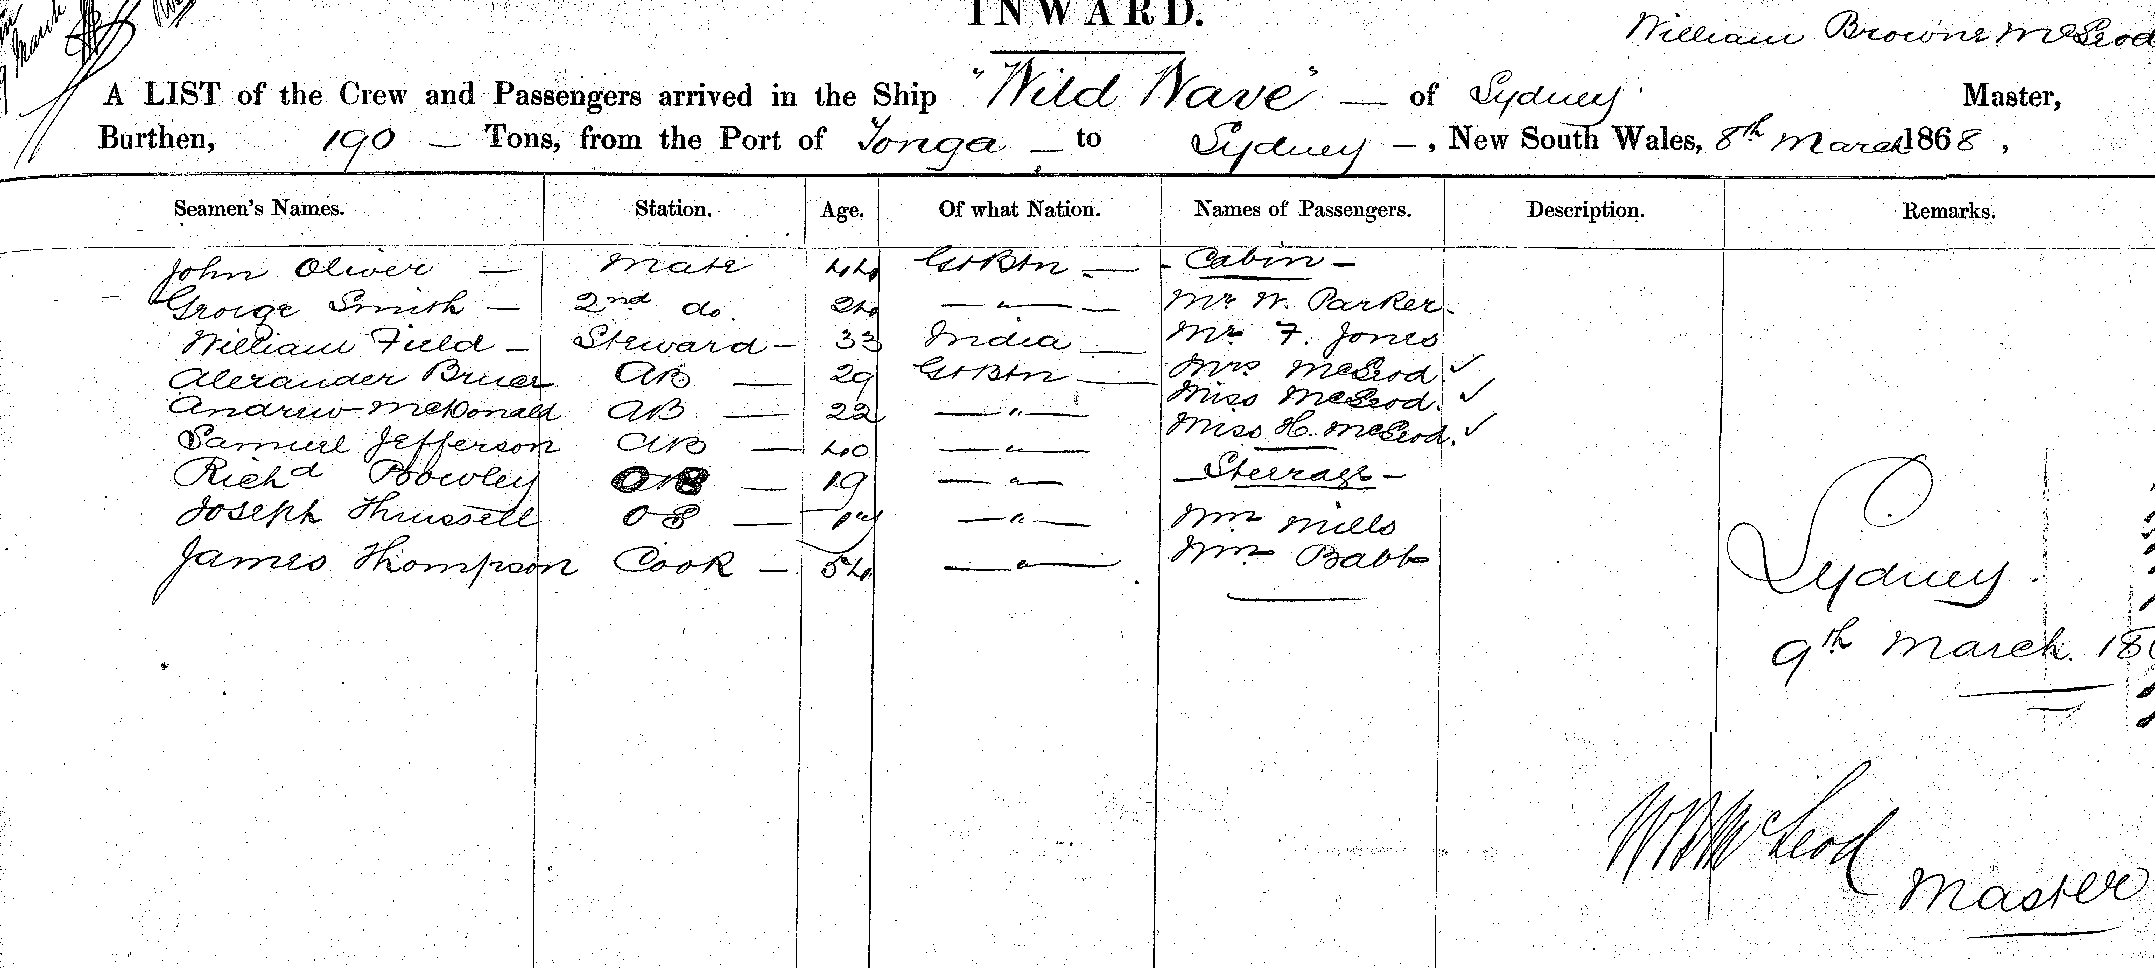 INWARD.
William Browne McLeod
A LIST of the Crew and Passengers arrived in the Ship "Wild Wave" — of Sydney Master,
Burthen, 190 — Tons, from the Port of Tonga — to Sydney —, New South Wales, 8th March 1868,
Seamen's Names. Station. Age. Of what Nation. Names of Passengers. Description. Remarks.
John Oliver — Mate 44 Gt Btn — - Cabin -
George Smith — 2nd do. 24 — " — Mr W. Parker.
William Field — Steward — 33 India — Mr F. Jones
Alexander Bruce AB — 29 Gt Btn — Mrs McLeod ✓
Andrew McDonald AB — 22 — " — Miss McLeod. ✓
Samuel Jefferson AB — 40 — " — Miss H. McLeod. ✓
Richd Bowley OS — 19 — " — — Steerage -
Joseph Thrussell OS — — " — Wm Mills
James Thompson Cook — 54 — " — Wm Babb
Sydney.
9th March. 18
WB McLeod
Master